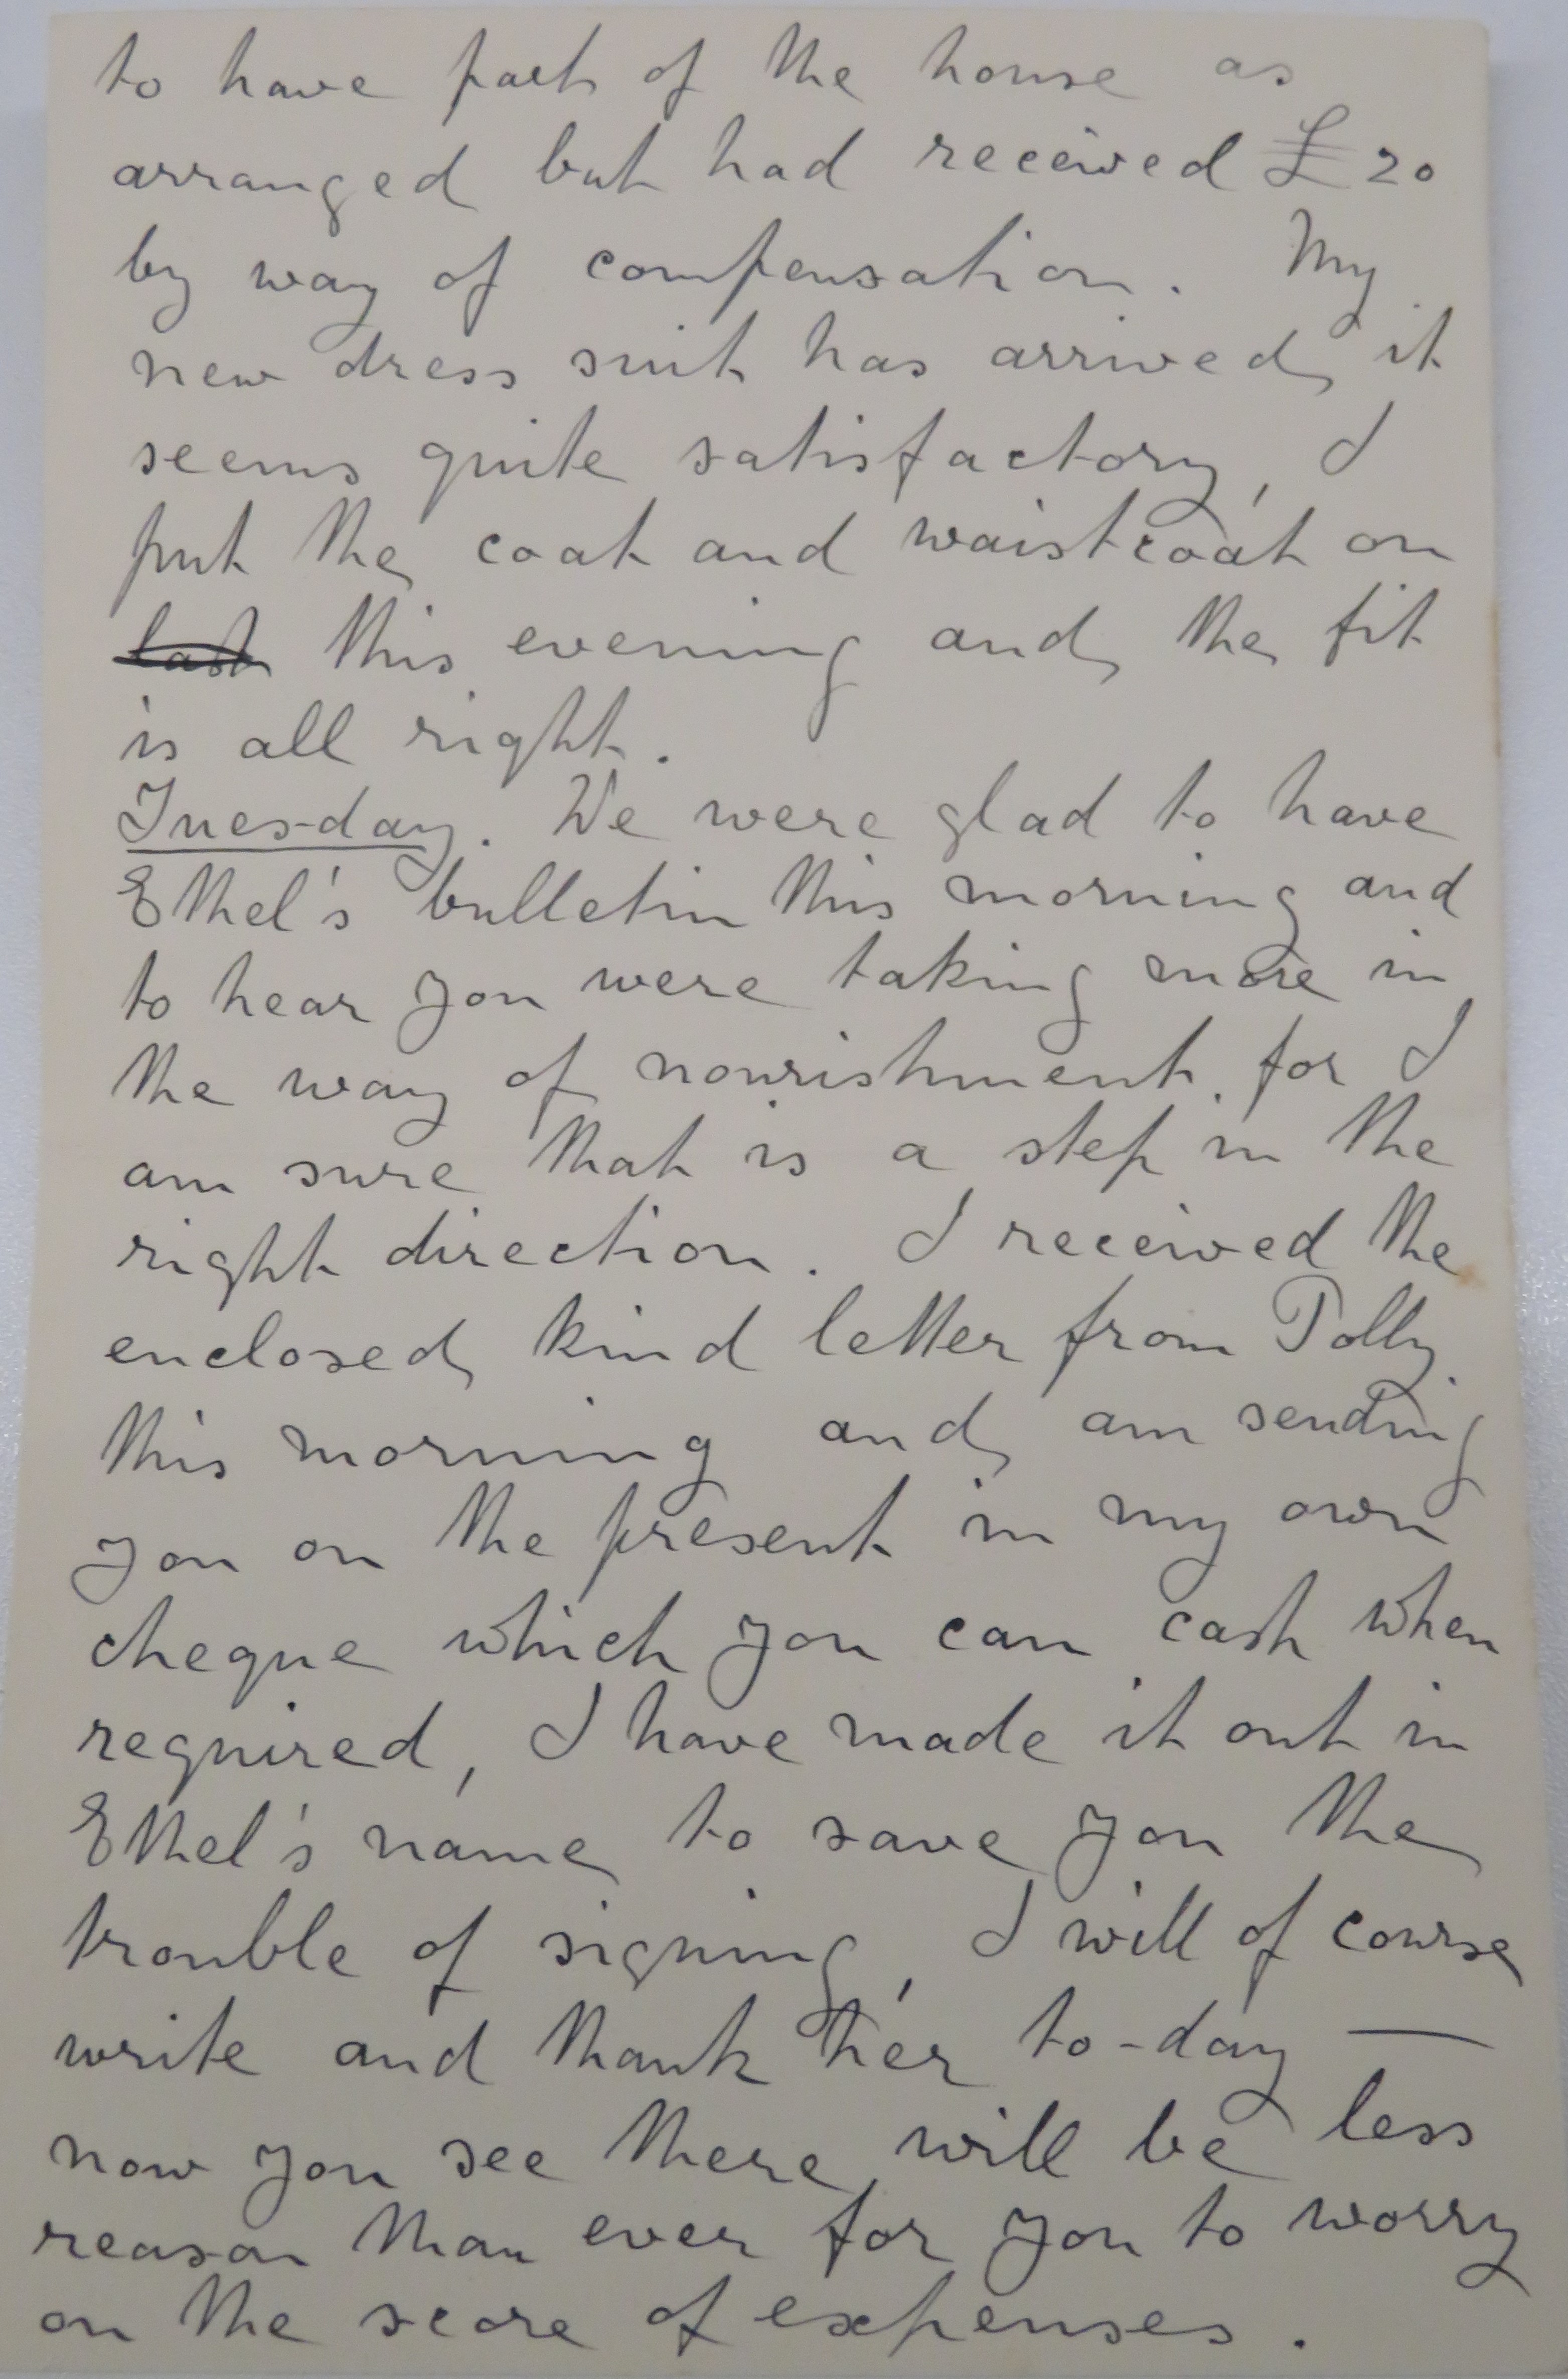 to have part of the house as
arranged but had received £20
by way of compensation. My
new dress suit has arrived, it
seems quite satisfactory, I
put the coat and waistcoat on
last this evening and the fit
is all right.
Tuesday. We were glad to have
Ethel's bulletin this morning and
to hear you were taking more in
the way of nourishment, for I
am sure that is a step in the
right direction. I received the
enclosed kind letter from Polly
this morning and am sending
you on the present in my own
cheque which you can cash when
required, I have made it out in
Ethel's name to save you the
trouble of signing, I will of course
write and thank her to-day —
now you see there will be less
reason than ever for you to worry
on the score of expenses.